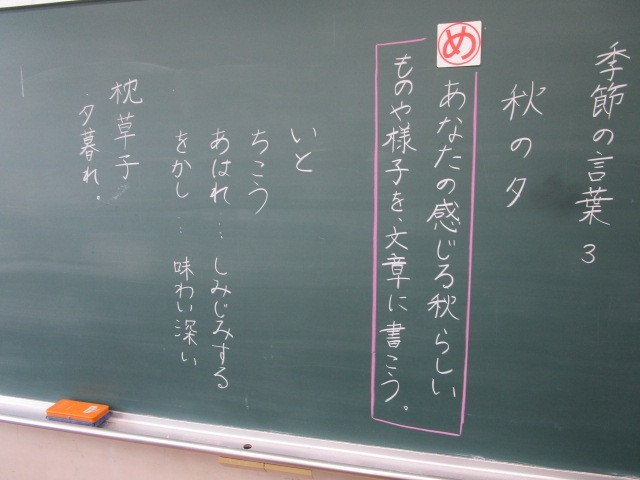 季節の言葉 3
秋の夕
め
あなたの感じる秋らしい
ものや様子を、文章に書こう。
いと
ちこう
あはれ… しみじみする
をかし… 味わい深い
枕草子
・夕暮れ。